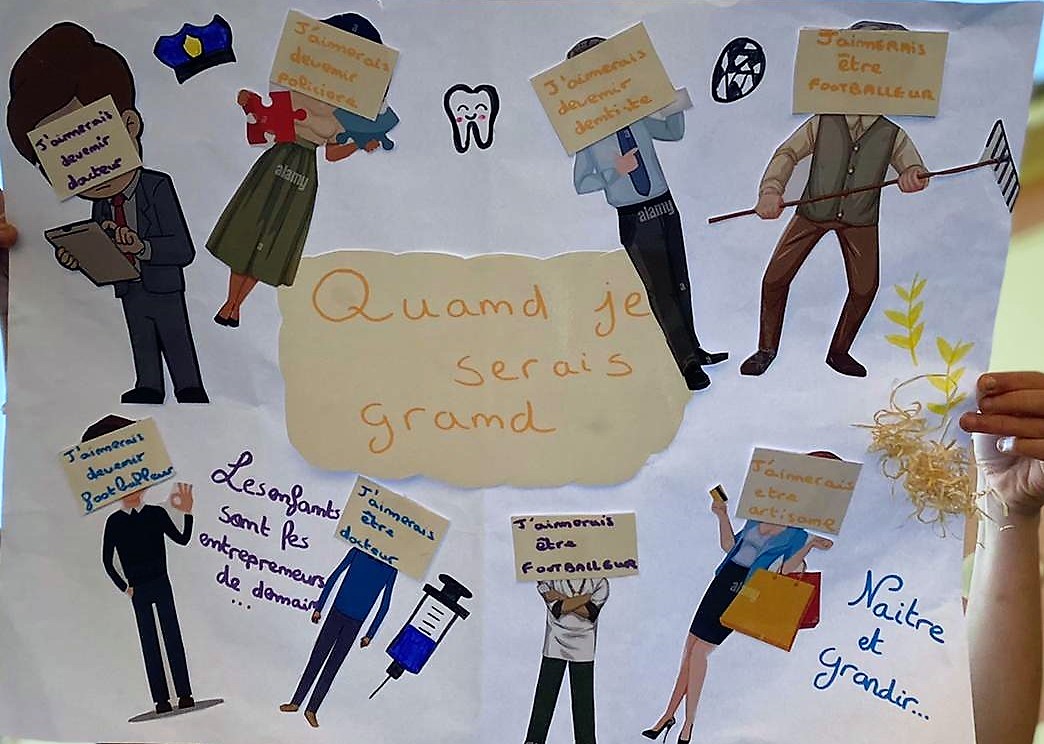 J'aimerais
devenir
docteur
J'aimerais
devenir
policiere
J'aimerais
devenir
dentiste
J'aimerais
être
FOOTBALLEUR
alamy
alamy
Quand je
serais
grand
J'aimerais
devenir
footballeur
Les enfants
sont les
entrepreneurs
de demain
...
J'aimerais
être
docteur
J'aimerais
être
FOOTBALLEUR
J'aimerais
etre
artisane
Naitre
et
Grandir...